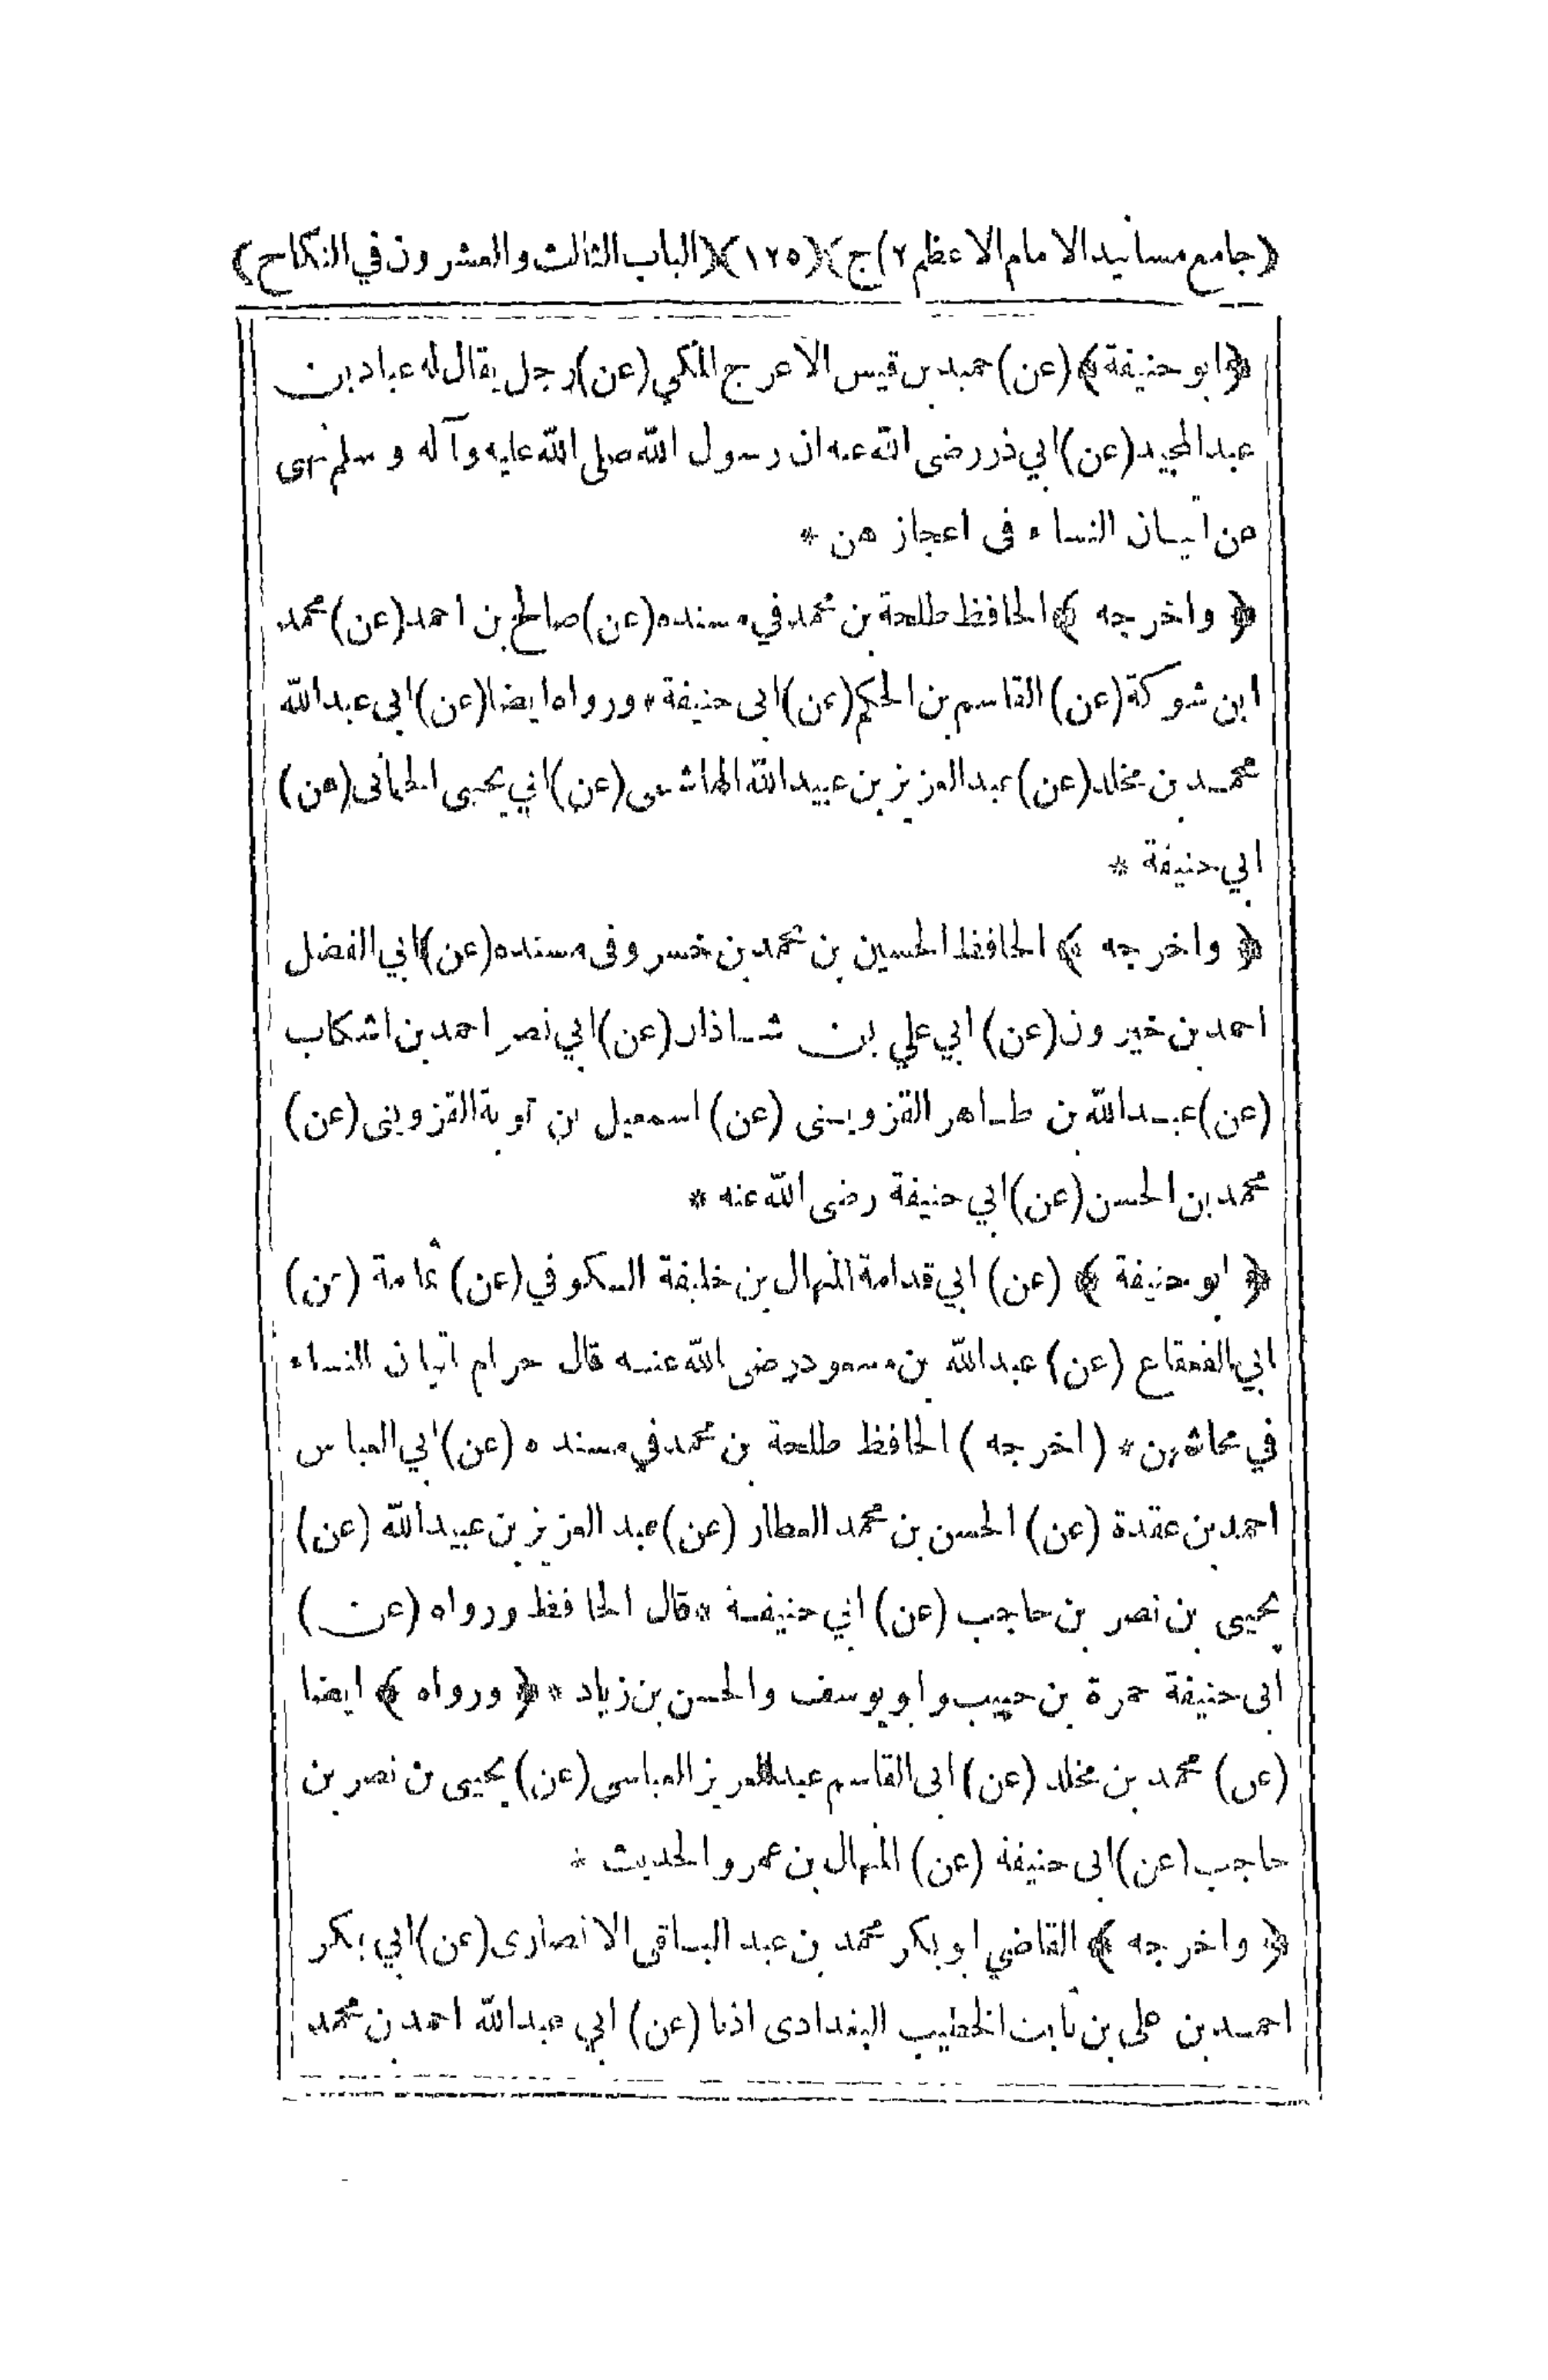 (جامع مسانيد الامام الاعظم ٢)ج)(١٢٥)(الباب الثالث والعشرون في النكاح)
﴿ابو حنيفة﴾ (عن) حميد بن قيس الاعرج المكي (عن) رجل يقال له عباد بن
عبد المجيد (عن) ابي ذر رضى الله عنه ان رسول الله صلى الله عليه وآله وسلم نهى
عن اتيان النساء فى اعجاز هن *
﴿ واخرجه ﴾ الحافظ طلحة بن محمد في مسنده (عن) صالح بن احمد (عن) محمد
ابن شوكة (عن) القاسم بن الحكم (عن) ابى حنيفة * ورواه ايضا (عن) ابى عبد الله
محمد بن مخلد (عن) عبد العزيز بن عبيد الله الهاشمى (عن) ابي يحيى الحمانى (عن)
ابي حنيفة *
﴿ واخرجه ﴾ الحافظ الحسين بن محمد بن خسرو فى مسنده (عن) ابي الفضل
احمد بن خيرون (عن) ابي علي بن شاذان (عن) ابي نصر احمد بن اشكاب
(عن) عبد الله بن طاهر القزويني (عن) اسمعيل بن توبة القزوينى (عن)
محمد بن الحسن (عن) ابي حنيفة رضى الله عنه *
﴿ ابو حنيفة ﴾ (عن) ابي قدامة المنهال بن خليفة الكوفي (عن) ثمامة (عن)
ابي القعقاع (عن) عبد الله بن مسعود رضى الله عنه قال حرام اتيان النساء
في محاشهن * (اخرجه) الحافظ طلحة بن محمد في مسنده (عن) ابي العباس
احمد بن عقدة (عن) الحسن بن محمد العطار (عن) عبد العزيز بن عبيد الله (عن)
يحيى بن نصر بن حاجب (عن) ابي حنيفة * قال الحافظ ورواه (عن)
ابى حنيفة حمزة بن حبيب وابو يوسف والحسن بن زياد * ﴿ ورواه ﴾ ايضا
(عن) محمد بن مخلد (عن) ابى القاسم عبد العزيز العباسى (عن) يحيى بن نصر بن
حاجب (عن) ابى حنيفة (عن) المنهال بن عمرو الحديث *
﴿ واخرجه ﴾ القاضي ابو بكر محمد بن عبد الباقى الانصارى (عن) ابي بكر
احمد بن على بن ثابت الخطيب البغدادى اذنا (عن) ابي عبد الله احمد بن محمد